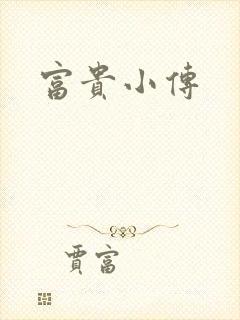 富貴小傳
賈富